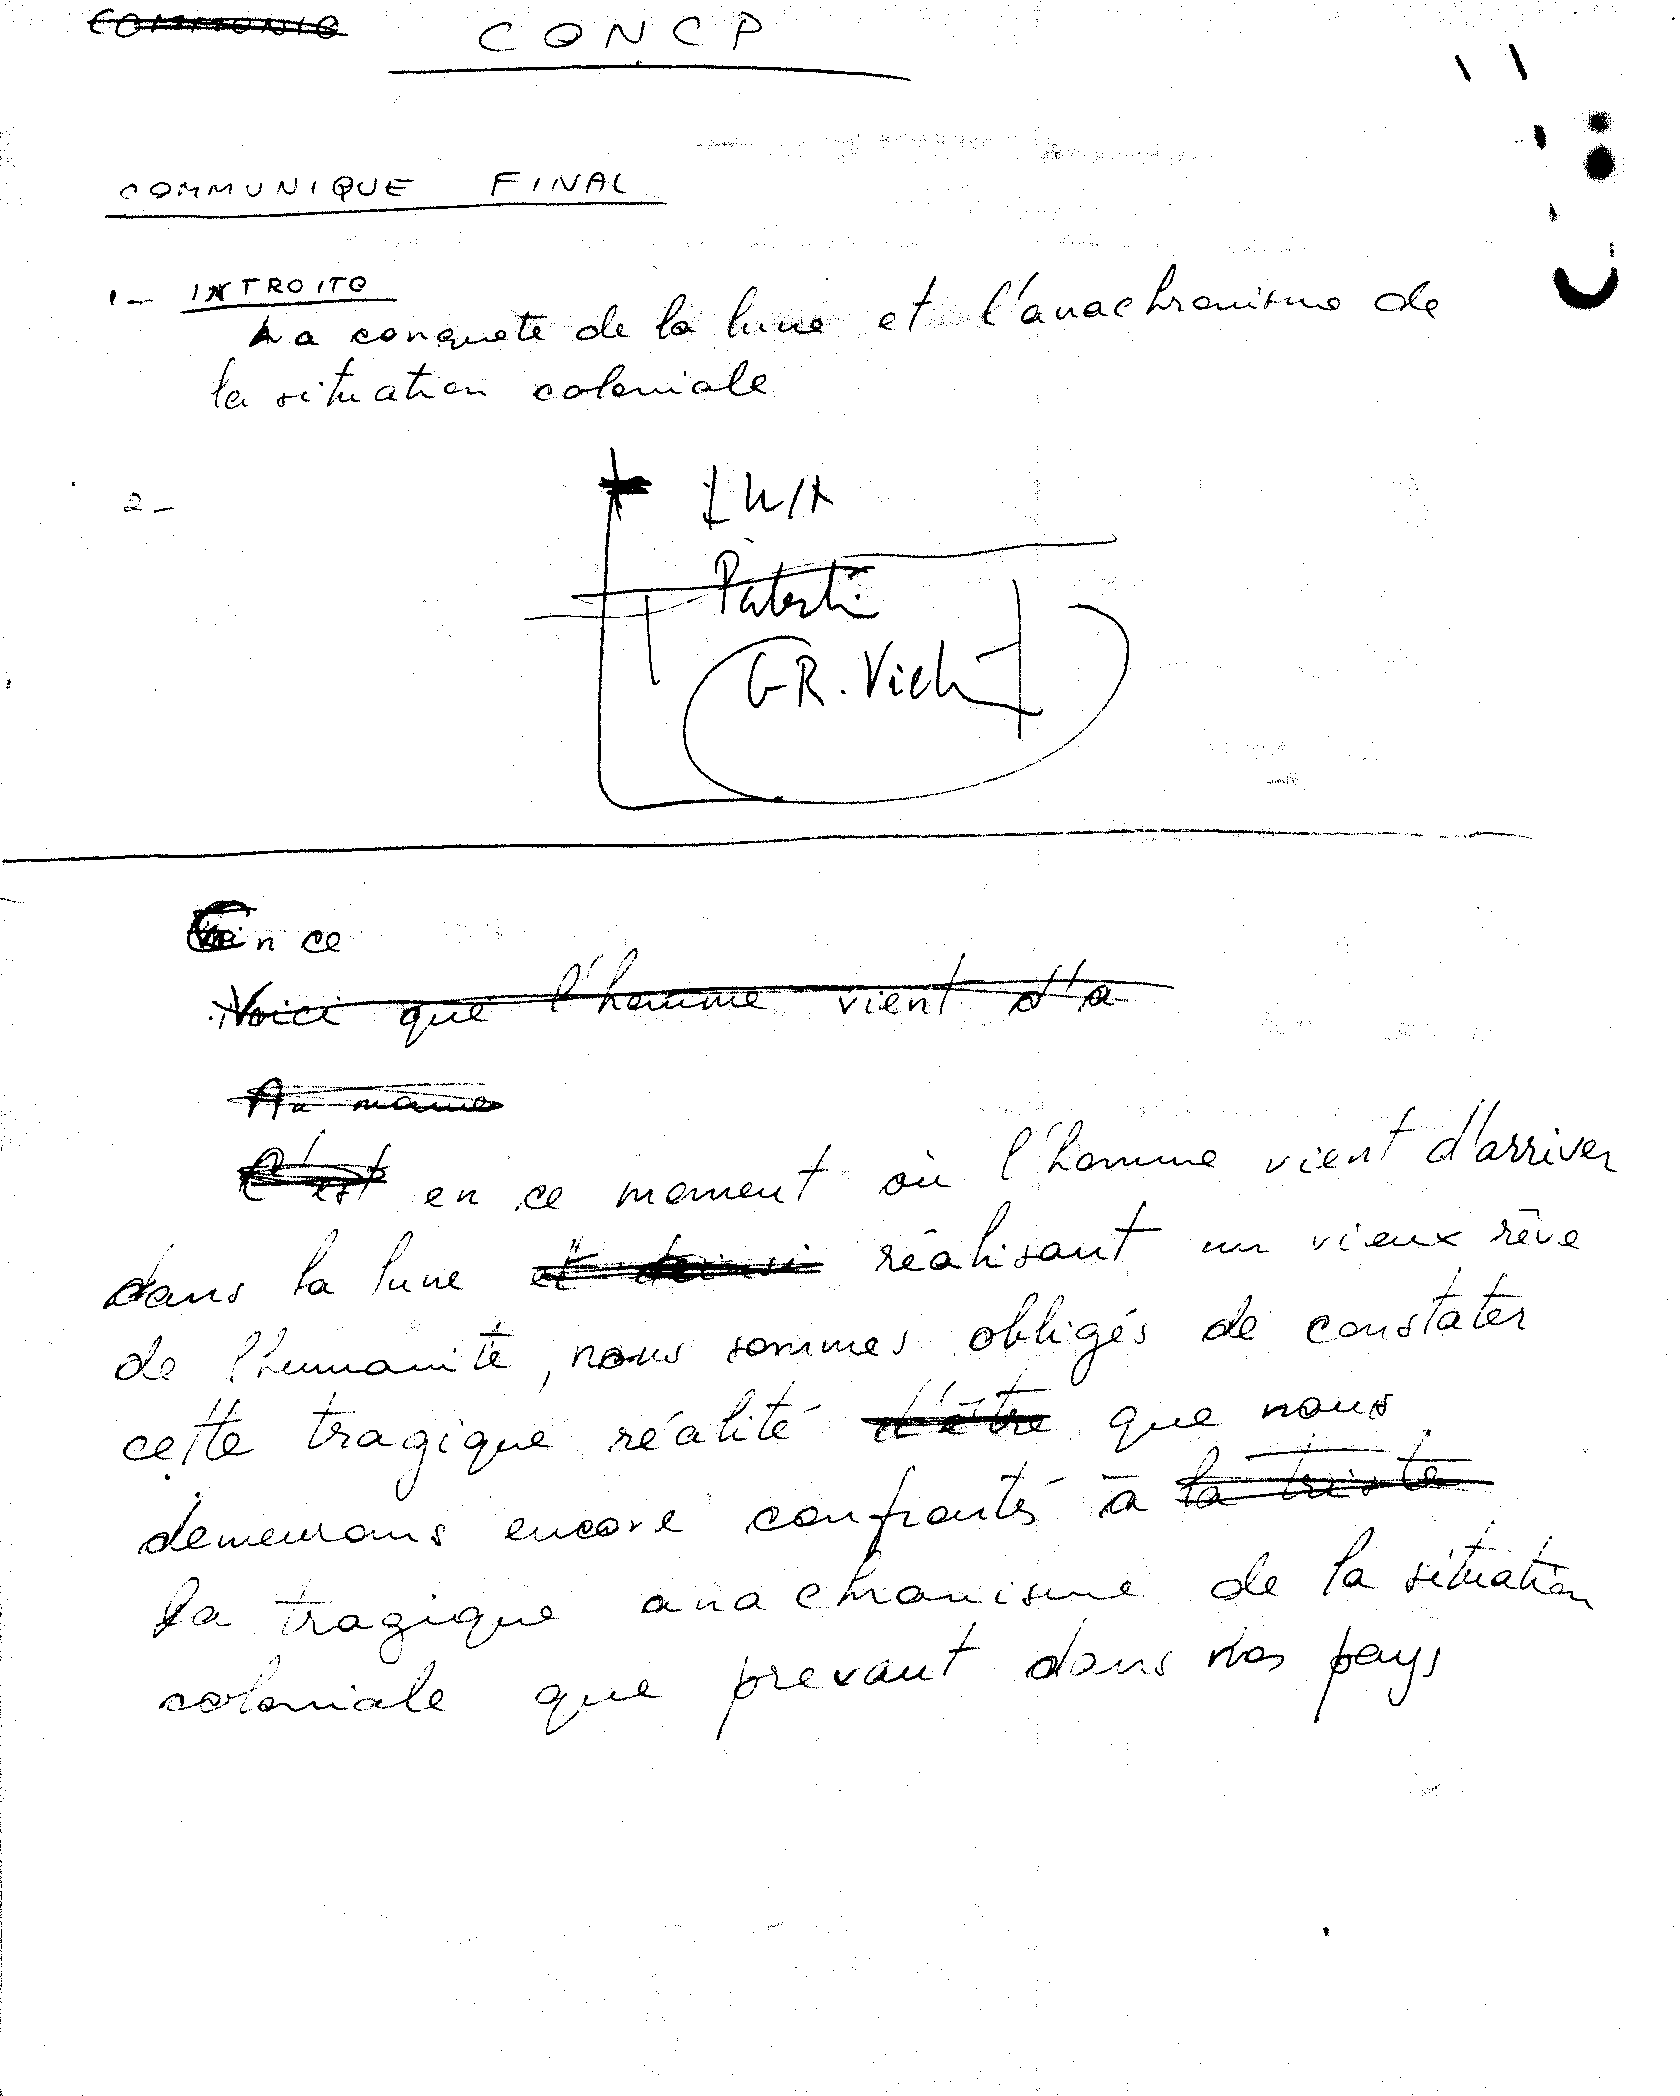 CONCP
COMMUNIQUE FINAL
1- INTROITO
La conquete de la lune et l'anachronisme de
la situation coloniale
2-
GR. Viet
En ce
Voici que l'homme vient d'a
Au mome
C'est en ce moment où l'homme vient d'arriver
dans la lune réalisant un vieux rêve
de l'humanité, nous sommes obligés de constater
cette tragique réalité d'être que nous
demeurons encore confrontés à la triste
la tragique anachronisme de la situation
coloniale que prevaut dans nos pays